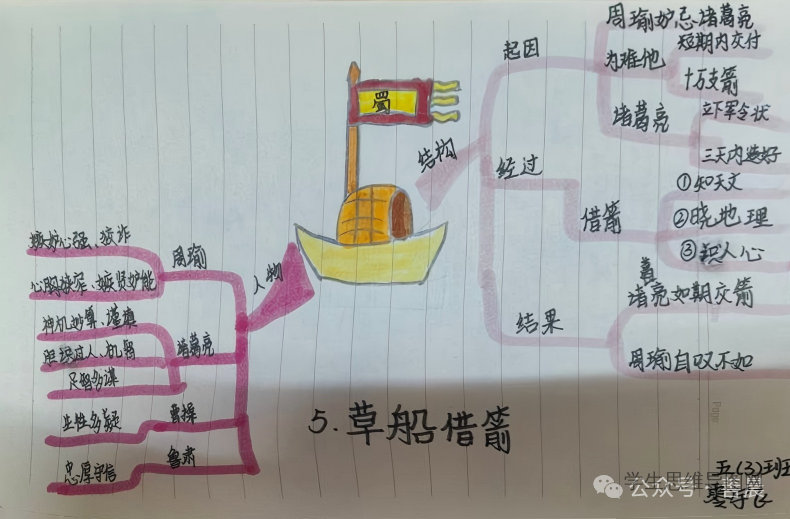 蜀
结构
起因
周瑜妒忌诸葛亮
为难他
短期内交付
十万支箭
诸葛亮
立下军令状
三天内造好
经过
借箭
①知天文
②晓地理
③识人心
结果
诸葛亮如期交箭
周瑜自叹不如
人物
周瑜
嫉妒心强、狡诈
心胸狭窄、嫉贤妒能
诸葛亮
神机妙算、谨慎
胆识过人、机智
足智多谋
曹操
生性多疑
鲁肃
忠厚守信
5.草船借箭
五(3)班
学生思维导图网
公众号